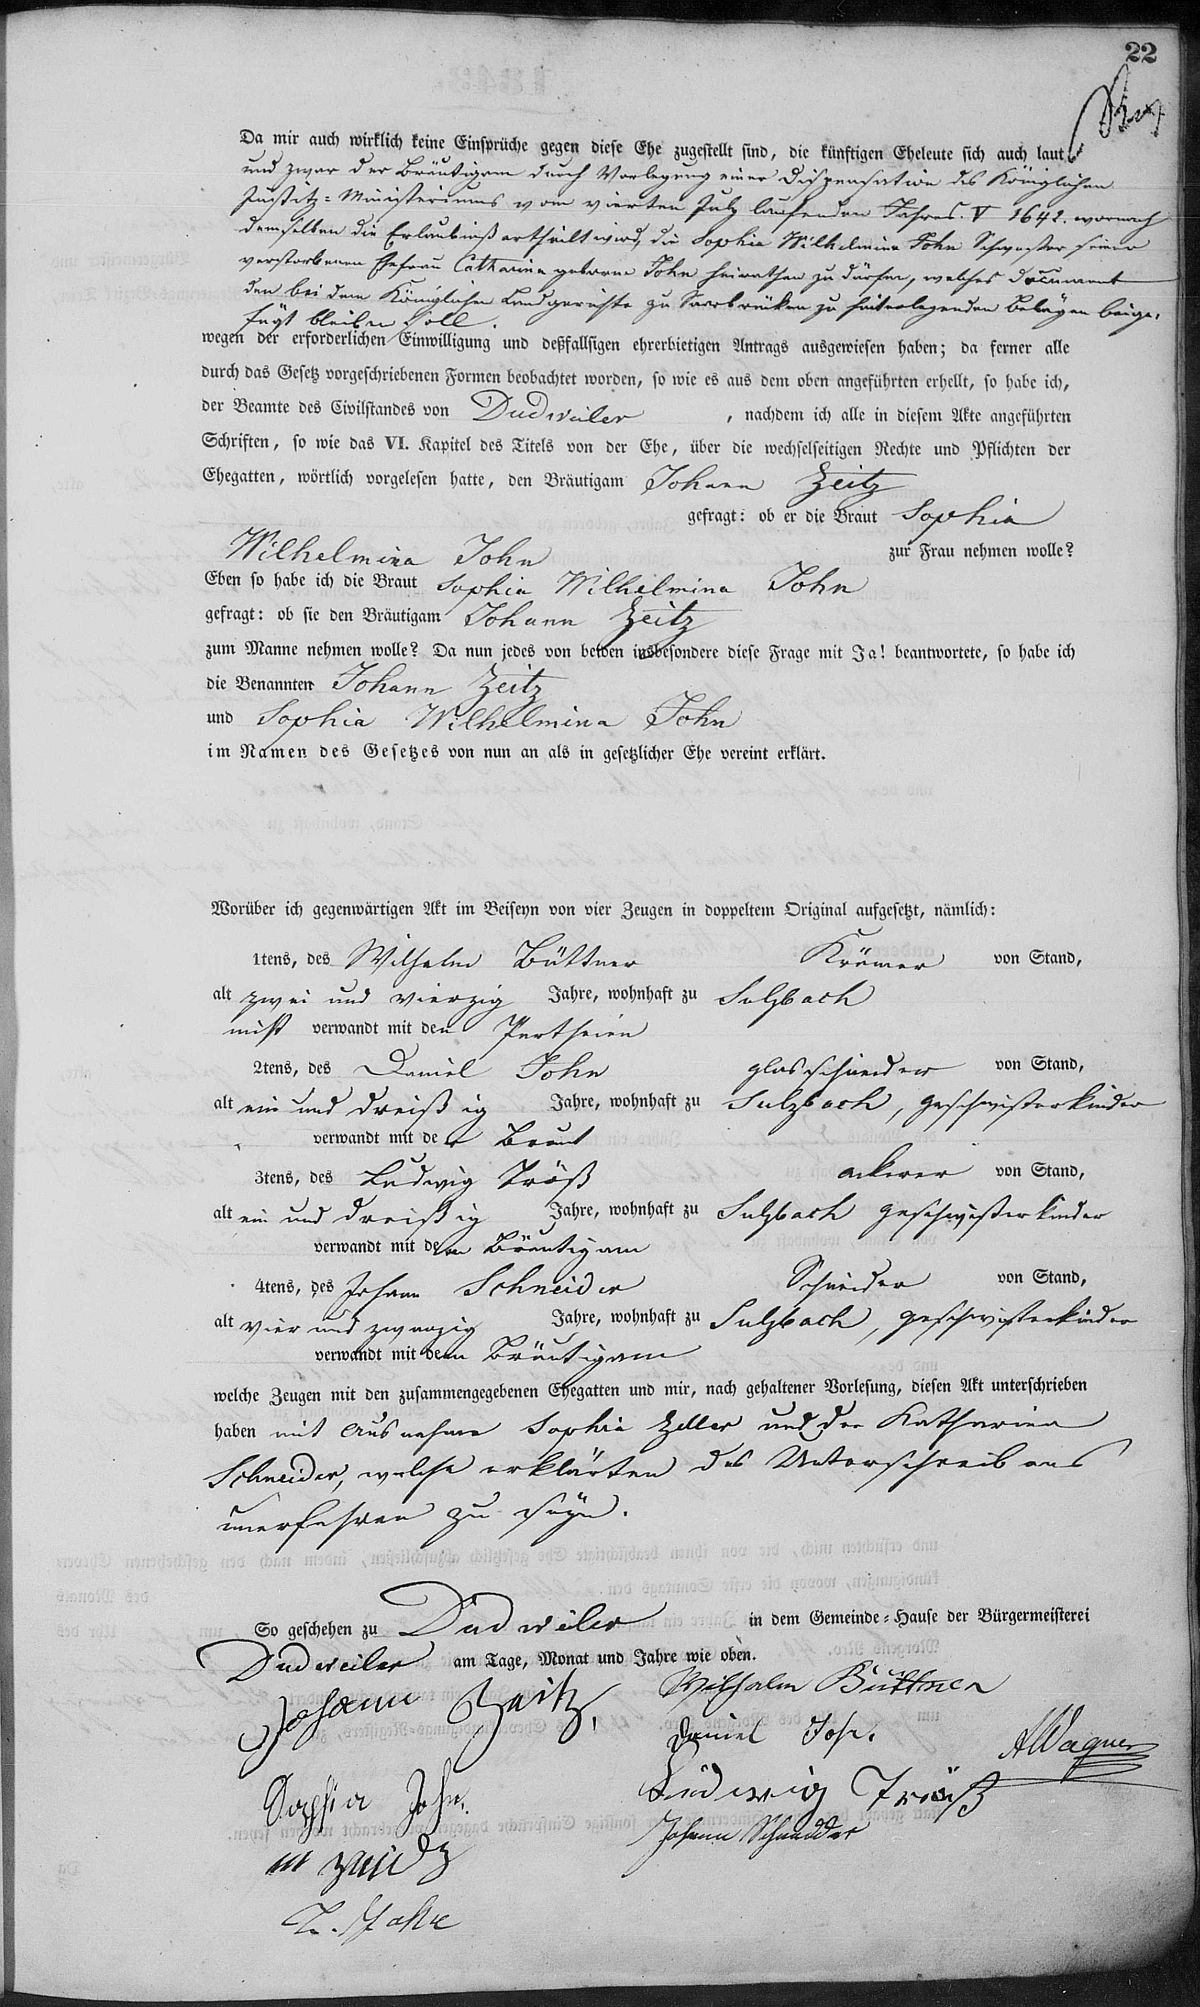 22
Da mir auch wirklich keine Einsprüche gegen diese Ehe zugestellt sind, die künftigen Eheleute sich auch laut
und zwar der Bräutigam durch Vorlegung einer Dispensation des Königlichen
Justitz-Ministeriums vom vierten July laufenden Jahres. V 1642. wornach
demselben die Erlaubniß ertheilt wird, die Sophia Wilhelmina John Schwester seiner
verstorbenen Ehefrau Catharina geborne John heirathen zu dürfen, welches Document
den bei dem Königlichen Landgerichte zu Saarbrücken zu hinterlegenden Belägen beige-
fügt bleiben soll.
wegen der erforderlichen Einwilligung und deßfallsigen ehrerbietigen Antrags ausgewiesen haben; da ferner alle
durch das Gesetz vorgeschriebenen Formen beobachtet worden, so wie es aus dem oben angeführten erhellt, so habe ich,
der Beamte des Civilstandes von Dudweiler, nachdem ich alle in diesem Akte angeführten
Schriften, so wie das VI. Kapitel des Titels von der Ehe, über die wechselseitigen Rechte und Pflichten der
Ehegatten, wörtlich vorgelesen hatte, den Bräutigam Johann Zeitz
gefragt: ob er die Braut Sophia
Wilhelmina John zur Frau nehmen wolle?
Eben so habe ich die Braut Sophia Wilhelmina John
gefragt: ob sie den Bräutigam Johann Zeitz
zum Manne nehmen wolle? Da nun jedes von beiden insbesondere diese Frage mit Ja! beantwortete, so habe ich
die Benannten Johann Zeitz
und Sophia Wilhelmina John
im Namen des Gesetzes von nun an als in gesetzlicher Ehe vereint erklärt.
Worüber ich gegenwärtigen Akt im Beiseyn von vier Zeugen in doppeltem Original aufgesetzt, nämlich:
1tens, des Wilhelm Büttner Krämer von Stand,
alt zwei und vierzig Jahre, wohnhaft zu Sulzbach
nicht verwandt mit den Partheien
2tens, des Daniel John glasschneider von Stand,
alt ein und dreißig Jahre, wohnhaft zu Sulzbach, geschwisterkinder
verwandt mit der Braut
3tens, des Ludwig Tröß ackerer von Stand,
alt ein und dreißig Jahre, wohnhaft zu Sulzbach geschwisterkinder
verwandt mit dem Bräutigam
4tens, des Johann Schneider Schneider von Stand,
alt vier und zwanzig Jahre, wohnhaft zu Sulzbach, geschwisterkinder
verwandt mit dem Bräutigam
welche Zeugen mit den zusammengegebenen Ehegatten und mir, nach gehaltener Vorlesung, diesen Akt unterschrieben
haben mit Ausnahme Sophia Zeller und der Katharina
Schneider, welche erklärten des Unterschreibens
unerfahren zu seyn.
So geschehen zu Dudweiler in dem Gemeinde-Hause der Bürgermeisterei
Dudweiler am Tage, Monat und Jahre wie oben.
Johann Zeitz, Wilhelm Büttner
Daniel Joh. AWagner
Sophia John. Ludwig Tröß
Johann Schneider